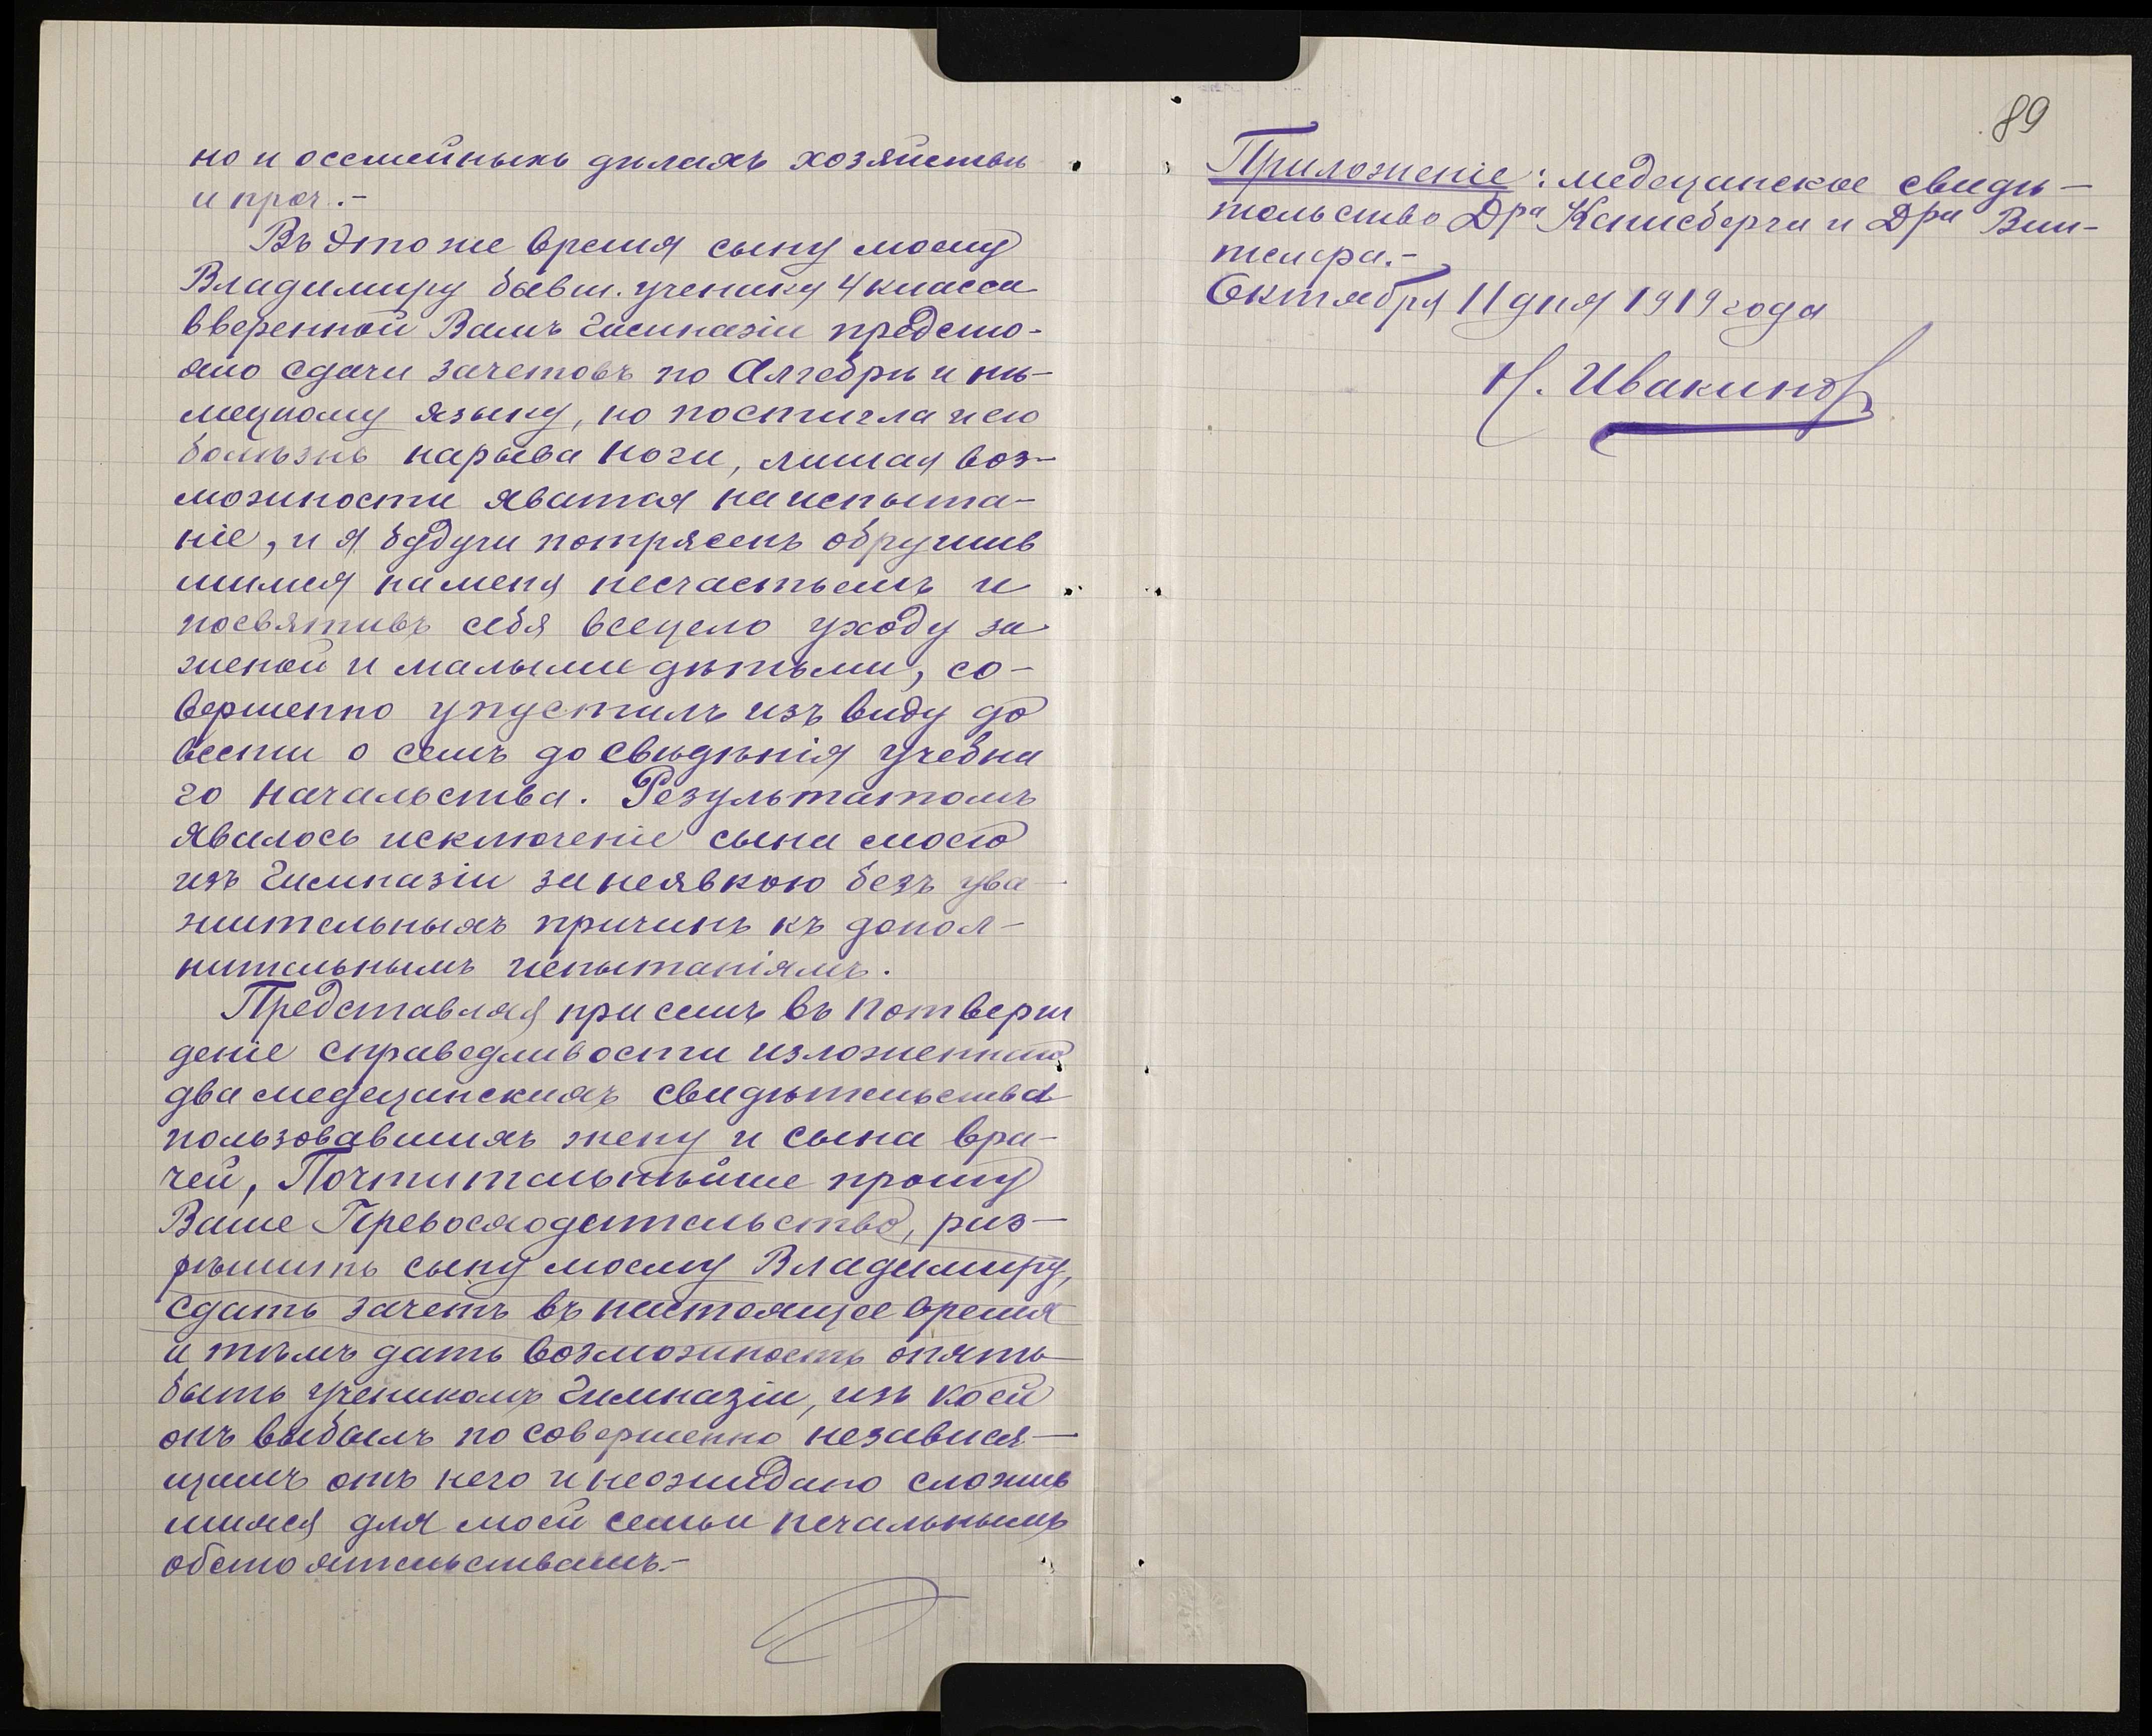 но и осемейныхъ дѣлахъ хозяйства
и проч.-
Въ это же время сыну моему
Владимиру бывш. ученику 4 класса
вверенной Вамъ Гимназіи предсто-
яло сдачи зачетовъ по Алгебрѣ и нѣ-
мецкому языку, но постигла его
болѣзнь нарыва ноги, лишая воз-
можности явится на испыта-
ніе, и я будучи потрясенъ обрушив
шимся на меня несчастьемъ и
посвятивъ себя всецело уходу за
женой и малыми дѣтьми, со-
вершенно упустилъ изъ виду до
вести о семъ до свѣдѣнія учебна
го начальства. Результатомъ
явилось исключеніе сына моего
изъ Гимназіи за неявкою безъ ува-
жительныхъ причинъ къ допол-
нительнымъ испытаніямъ.
Представляя при семъ въ потверж
деніе справедливости изложеннаго
два медецинскихъ свидѣтельства
пользовавшихъ жену и сына вра-
чей, Почтительнѣйше прошу
Ваше Превосходительство, раз-
рѣшить сыну моему Владимиру,
сдать зачетъ въ настоящее время
и тѣмъ дать возможность опять
быть ученикомъ Гимназіи, изъ коей
онъ выбылъ по совершенно независя-
щимъ отъ него и неожидано сложив
шимся для моей семьи печальнымъ
обстоятельствамъ.-
89
Приложеніе: медецинское свидѣ-
тельство Дра Кенисберга и Дра Вин-
телера.-
Октября 11 дня 1919 года
Н. Ивакинъ